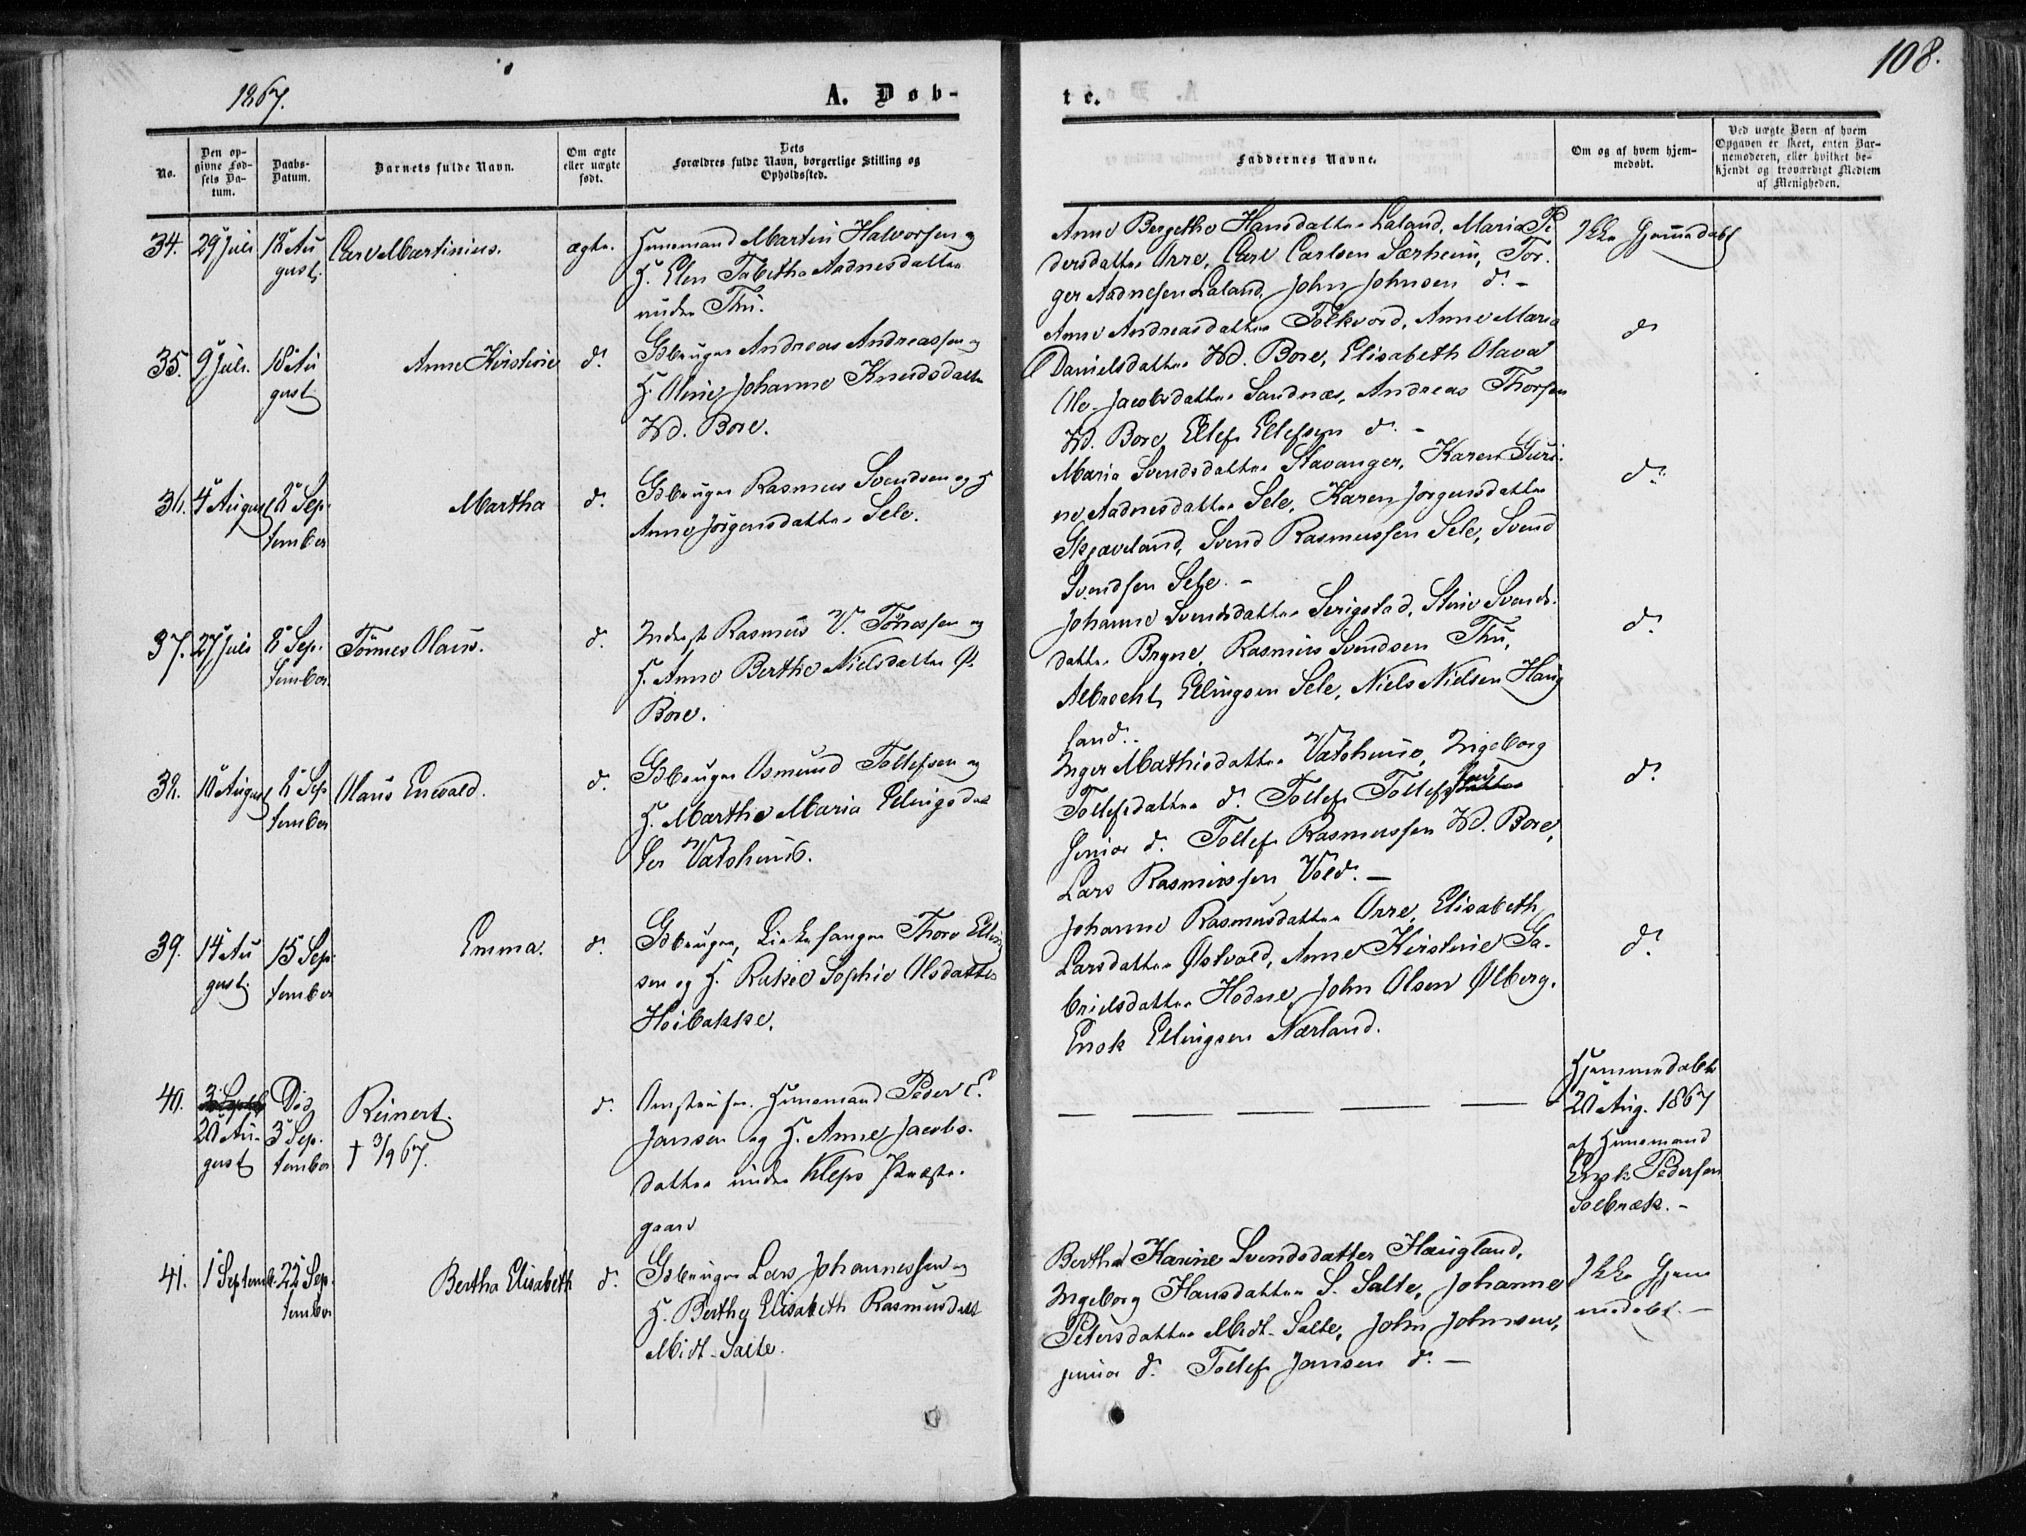 108.
1867.
A. Døb-
te.
No.
Den op-
givne Fød-
sels Da-
tum.
Daabs-
Datum.
Barnets fulde Navn.
Om ægte
eller uægte
født.
Dets
Forældres fulde Navn, borgerlige Stilling og
Opholdssted.
Faddernes Navne.
Om og af hvem hjem-
medøbt.
Ved uægte Børn af hvem
Opgaven er skeet, enten Bar-
nemoderen, eller hvilket be-
kjendt og troværdigt Medlem
af Menigheden.
34.
29 Juli
18 Au
gust
Carl Martinius.
ægte.
Huusmand Martin Halvorsen og
H. Elen Tabitha Aadnesdatter
under Thu.
Anne Bergethe Hansdatter Laland, Maria Pe
dersdatter Orre, Carl Carlsen Særheim, Tor-
ger Aadnesen Laland, John Johnsen d.-
Ikke Hjemmedøbt
35.
9 Juli.
18 Au
gust
Anne Kirstine
d.
Gbruger Andreas Andreassen og
H. Oline Johanne Knudsdatter
Wd. Bore.
Anne Andreasdatter Folkvord, Anne Maria
Danielsdatter Wd. Bore, Elisabeth Olava
Ole Jacobsdatter Sandnæs, Andreas Thorsen
Wd. Bore, Ellef Ellefsen d. -
d
36.
4 August
8 Sep.
tember
Martha
d.
Gbruger Rasmus Svendsen og H
Anne Jørgensdatter Sele.
Maria Svendsdatter Stavanger, Karen Guri-
ne Aadnesdatter Sele, Karen Jørgensdatter
Skjæveland, Svend Rasmussen Sele, Svend
Svendsen Sele. -
d.
37.
27 Juli
8 Sep.
tember.
Tønnes Olaus.
d.
Inderst Rasmus V. Tønessen og
H. Anne Berthe Nielsdatter Ø.
Bore.
Johanne Svendsdatter Serigstad, Stine Svends-
datter Bryne, Rasmus Svendsen Thu,
Albrecht Ellingsen Sele, Niels Nielsen Haug
land..
d.
38.
10 August
8 Sep
tember
Olaus Enevald.
d.
Gbruger Osmund Tollefsen og
H. Marthe Maria Ellingsdat
ter Vatshuus.
Inger Mathisdatter Vatshuus, Ingeborg
Tollefsdatter d. Tollef Tollefsen
Junior d. Tollef Rasmussen Wd. Bore,
Lars Rasmussen Vold. -
d.
39.
14 Au
gust.
15 Sep.
tember
Emma.
d.
Gbruger, Kirkesanger Thore Elling
sen og H. Rakel Sophie Olsdatter
Høibakke.
Johanne Rasmusdatter Orre, Elisabeth
Larsdatter Østvold, Anne Kirstine Ga-
brielsdatter Hodne, John Olsen Ølberg.
Enok Ellingsen Nærland.
d.
40.
20 Au-
gust
Død
3 Sep.
tember
Reinert.
† 3/9 67.
d.
Huusmand Peder E.
Jansen og H. Anne Jacobs-
datter under Klepp Præste-
gaard
Hjemmedøbt
20 Aug. 1867
af Huusmand
Enok Pedersen
Solbræk. -
41.
1 Septemb.
22 Sep.
tember
Bertha Elisabeth
d.
Gbruger Lars Johannessen og
H. Berthe Elisabeth Rasmusdatt
Midt-Salte.
Bertha Karine Svendsdatter Haugland,
Ingeborg Hansdatter S. Salte, Johanne
Petersdatter Midt-Salte, John Johnsen,
junior d. Tollef Jansen d. -
Ikke Hjem
medøbt. -